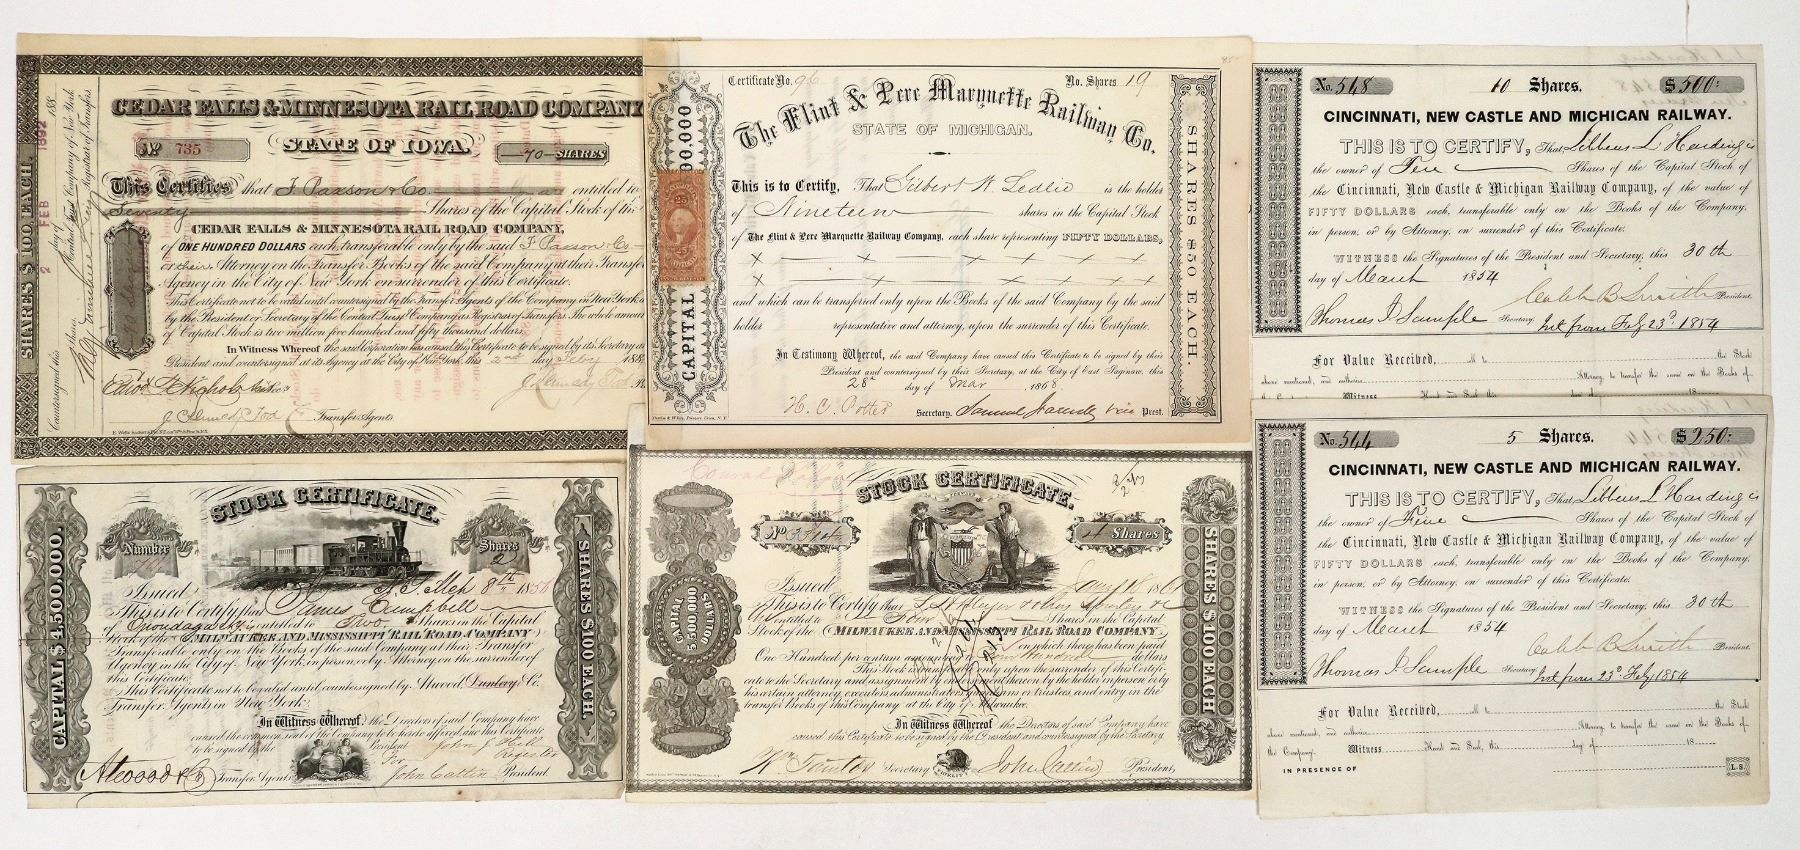 CEDAR FALLS & MINNESOTA RAIL ROAD COMPANY
STATE OF IOWA.
No 735
70 SHARES
This Certifies that F. Paxson & Co. entitled to
Seventy Shares of the Capital Stock of the
CEDAR FALLS & MINNESOTA RAIL ROAD COMPANY,
of ONE HUNDRED DOLLARS each transferable only by the said F Paxson & Co
or their Attorney on the Transfer Books of the said Company at their Transfer
Agency in the City of New York on surrender of this Certificate.
This Certificate not to be valid until countersigned by the Transfer Agents of the Company in New York
by the President or Secretary of the Central Trust Company as Registrar of Transfers. The whole amount
of Capital Stock is two million five hundred and fifty thousand dollars.
In Witness Whereof the said Corporation has caused this Certificate to be signed by its Secretary
President and countersigned at its Agency at the City of New York, this 2nd day Feby 188
J. Kennedy Tod
Transfer Agents
SHARES $100 EACH.
2 FEB 1892
Countersigned this
day of 188
Central Trust Company of New York
Registrar of Transfers
Certificate No. 96
No. Shares 19
The Flint & Pere Marquette Railway Co.
STATE OF MICHIGAN.
This is to Certify, That Gilbert W Ledlie is the holder
of Nineteen shares in the Capital Stock
of The Flint & Pere Marquette Railway Company, each share representing FIFTY DOLLARS,
X X X X X X X
X X X X X X X
and which can be transferred only upon the Books of the said Company by the said
holder representative and attorney, upon the surrender of this Certificate.
In Testimony Whereof, the said Company have caused this Certificate to be signed by their
President and countersigned by their Secretary, at the City of East Saginaw, this
28th day of Mar 1868
H. C. Potter Secretary. Samuel Vice Prest.
CAPITAL
00,000
25
SHARES $50 EACH.
No. 548 10 Shares. $500:
CINCINNATI, NEW CASTLE AND MICHIGAN RAILWAY.
THIS IS TO CERTIFY, That Libbeus L Harding is
the owner of Ten Shares of the Capital Stock of
the Cincinnati, New Castle & Michigan Railway Company, of the value of
FIFTY DOLLARS each, transferable only on the Books of the Company,
in person, or by Attorney, on surrender of this Certificate.
WITNESS the Signatures of the President and Secretary, this 30th
day of March 1854
Caleb B Smith President.
Thomas J Sample Secretary. Int from Feby 23d 1854
For Value Received, the Stock
above mentioned, and authorize Attorney to transfer the same on the Books of
Witness Hand and Seal, this day of 18
No. 544 5 Shares. $250:
CINCINNATI, NEW CASTLE AND MICHIGAN RAILWAY.
THIS IS TO CERTIFY, That Libbeus L Harding is
the owner of Five Shares of the Capital Stock of
the Cincinnati, New Castle & Michigan Railway Company, of the value of
FIFTY DOLLARS each, transferable only on the Books of the Company,
in person, or by Attorney, on surrender of this Certificate.
WITNESS the Signatures of the President and Secretary, this 30th
day of March 1854
Caleb B Smith President.
Thomas J Sample Secretary. Int from 23d Feby 1854
For Value Received, the Stock
above mentioned, and authorize Attorney to transfer the same on the Books of
the Company. Witness Hand and Seal, this day of 18
IN PRESENCE OF
L.S.
STOCK CERTIFICATE.
Number
Shares
2
Issued N.Y. Sep 8th 1856
This is to Certify that James Campbell
of Onondaga is entitled to Two Shares in the Capital
Stock of the MILWAUKEE AND MISSISSIPPI RAIL ROAD COMPANY
Transferable only on the Books of the said Company at their Transfer
Agency in the City of New York in person or by Attorney on the surrender of
this Certificate.
This Certificate not to be valid until countersigned by Atwood Dunlap & Co.
Transfer Agents in New York.
In Witness Whereof the Directors of said Company have
caused the common seal of the Company to be hereto affixed and this Certificate
to be signed by the President
Register
Atwood & Co Transfer Agents
John Catlin President
CAPITAL $4,500,000.
SHARES $100 EACH.
STOCK CERTIFICATE.
No
4 Shares
Issued
This is to Certify that
entitled to Four Shares in the Capital
Stock of the MILWAUKEE AND MISSISSIPPI RAIL ROAD COMPANY
on which there has been paid
One Hundred per cent amounting to Four Hundred dollars
This Stock is transferable only upon the surrender of this Certifi-
cate to the Secretary and assignment thereon by the holder in person or by
his certain attorney, executors administrators or trustee, and entry in the
transfer Books of this Company at the City of Milwaukee.
In Witness Whereof the Directors of said Company have
caused this Certificate to be signed by the President and countersigned by the Secretary
Secretary John Catlin President,
FIDELITY
CAPITAL
3,500,000
DOLLARS
SHARES $100 EACH